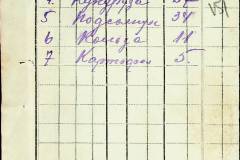 4. Кукуруза
5 Подсолнух 34
6 Кольза 11
7 Картофель 5.